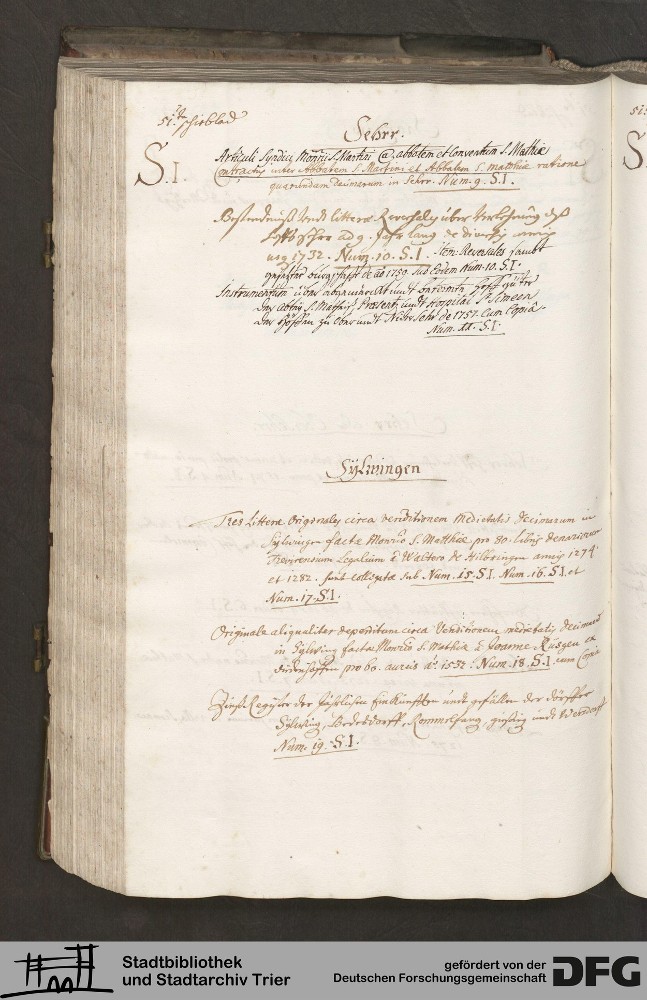 51te schieblad
S.I.
Sehrr.
Articuli Syndici Monrii S. Martini Ca abbatem et Conventum S. Mathiae
Contractus inter Abbatem S. Martini et Abbatem S. Matthiae ratione
quarundam decimarum in Sehrr. Num. 9. S.I.
litterae Reversales über
ad 9. Jahr lang de diversis annis
usq 1732. Num. 10. S.I. Item: Reversales sambt
de ao 1759 sub eodem Num. 10. S.I.
Instrumentum über undt
S. Mathiae, Praesentz undt Hospital S.
zu undt de 1757. cum Copia.
Num. 11. S.I.
Sylwingen
Tres Litterae Originales circa venditionem Medietatis decimarum in
Sylwingen factae Monrio S. Matthiae pro 80. libris denariorum
Trevirensium Legalium à Waltero de Hilbringen annis 1274.
et 1282. sunt sub Num. 15. S.I. Num. 16. S.I. et
Num. 17. S.I.
Originale aliqualiter deperditum circa Venditionem medietatis decimarum
in Sylwing factae Monrio S. Mathiae à Joanne Küsgen ex
pro 60. aureis ao. 1532. Num. 18. S.I. cum Copia
Zinß Register der Jährlichen Einkünfften undt gefällen der dörffer
Sylwing, Rommelfang, undt
Num. 19. S.I.
Stadtbibliothek
und Stadtarchiv Trier
gefördert von der
Deutschen Forschungsgemeinschaft
DFG